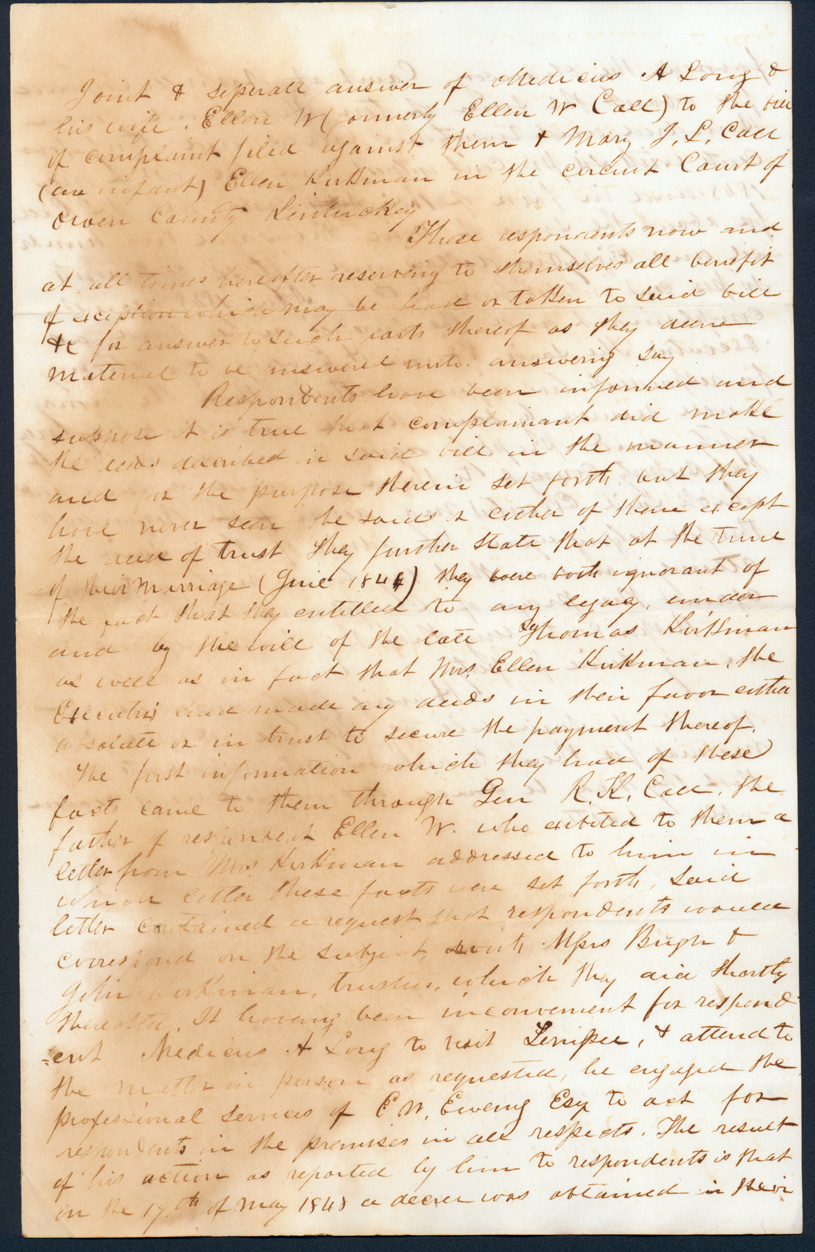 Joint & seperate answer of Medicus A Long &
his wife. Ellen W (formerly Ellen W Call) to the bill
of complaint filed against them & Mary J. L. Call
(an infant) Ellen Kirkman in the circuit Court of
Owen County Kentuckey
These respondents now and
at all times hereafter reserving to themselves all benefit
of exception which may be had or taken to said bill
&c for answer to such parts thereof as they deem
material to be answered unto. answering say
Respondents have been informed and
suppose it is true that complainant did make
the deeds described in said bill in the manner
and for the purpose therein set forth but they
have never seen the same or either of them except
the deed of trust They further state that at the time
of their marriage (June 1844) they were both ignorant of
the fact that they entitled to any legacy, under
and by the will of the late Thomas Kirkman
as well as in fact that Mrs Ellen Kirkman, the
Executrix had made any deeds in their favor either
absolute or in trust to secure the payment thereof.
The first information which they had of these
facts came to them through Gen R. K. Call. the
father of respondent Ellen W. who exibited to them a
letter from Mrs Kirkman addressed to him in
which letter these facts were set forth. Said
letter contained a request that respondents would
correspond on the subject with Mssrs &
John Kirkman, trustees, which they did shortly
thereafter. It having been inconvenient for respond
=ent Medicus A Long to visit & attend to
the matter in person as requested, he engaged the
professional services of E W. Ewing Esq to act for
respondents in the premises in all respects. The result
of his action as reported by him to respondents is that
in the 17.th of May 1848 a decree was obtained in their